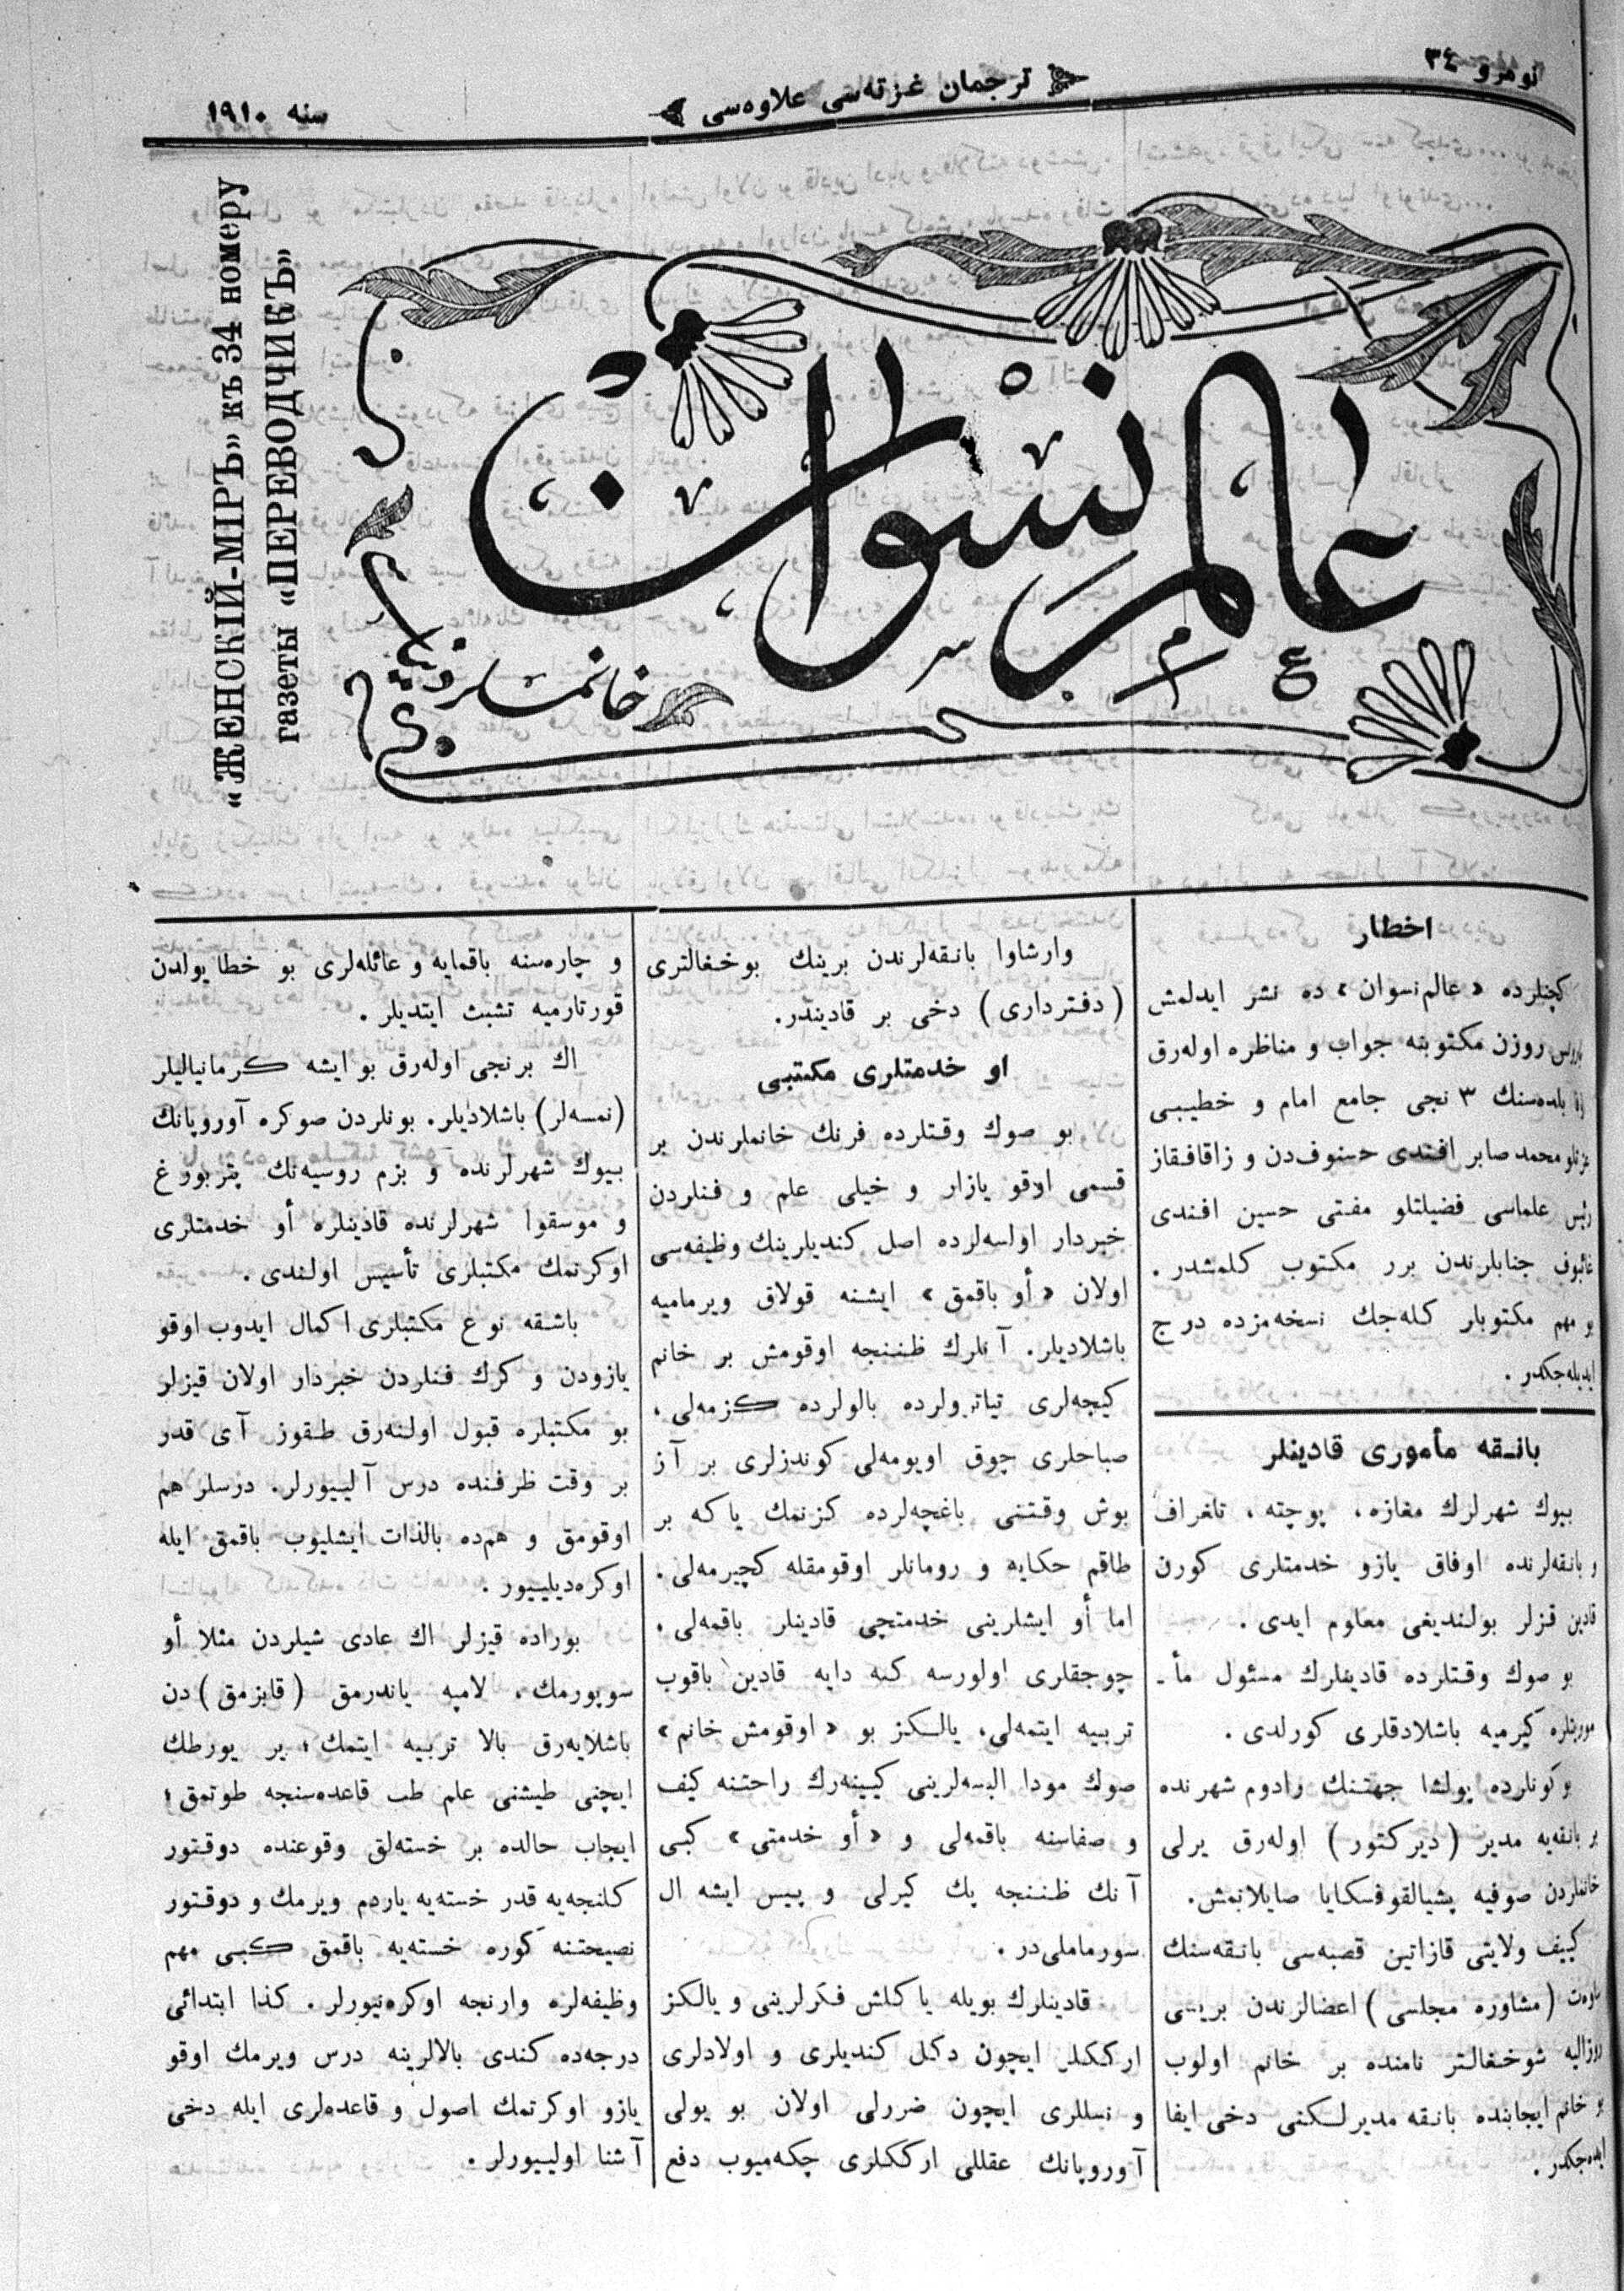 نومرو ٣٤
ترجمان غزته‌سی علاوه‌سی
سنه ١٩١٠
«ЖЕНСКІЙ-МІРЪ» къ 34 номеру
газеты «ПЕРЕВОДЧИКЪ»
عالم نسوان
خانملر دنیاسی
اخطار
كچنلرده «عالم نسوان» ده نشر ایدلمش
روزن مكتوبنه جواب و مناظره اوله‌رق
بلده‌سنك ٣ نجی جامع امام و خطیبی
محمد صابر افندی حسنوف‌دن و زاقافقاز
رئیس علماسی فضیلتلو مفتی حسین افندی
غائبوف جنابلرندن برر مكتوب كلمشدر.
بو مهم مكتوبلر كله‌جك نسخه‌مزده درج
ایدیله‌جكدر.
بانقه مأموری قادینلر
بیوك شهرلرك مغازه، پوچته، تلغراف
و بانقه‌لرنده اوفاق یازو خدمتلری كورن
قادین قزلر بولندیغی معلوم ایدی.
بو صوك وقتلرده قادینلرك مسئول مأ-
موریتلره كیرمیه باشلادقلری كورلدی.
بو كونلرده پولشا جهتنك رادوم شهرنده
بر بانقه‌یه مدیر (دیركتور) اوله‌رق یرلی
خانملردن صوفیه پشیالقوفسكایا صایلانمش.
كییف ولایتی قازاتین قصبه‌سی بانقه‌سنك
(مشاوره مجلسی) اعضالرندن بریسی
روزالیه شوخغالتر نامنده بر خانم اولوب
بو خانم ایجابنده بانقه مدیرلكنی دخی ایفا
ایده‌جكدر.
وارشاوا بانقه‌لرندن برینك بوخغالتری
(دفترداری) دخی بر قادیندر.
او خدمتلری مكتبی
بو صوك وقتلرده فرنك خانملرندن بر
قسمی اوقو یازار و خیلی علم و فنلردن
خبردار اولسه‌لرده اصل كندیلرینك وظیفه‌سی
اولان «أو باقمق» ایشنه قولاق ویرمامیه
باشلادیلر. آنلرك ظننجه اوقومش بر خانم
كیجه‌لری تیاترولرده بالولرده كزمه‌لی،
صباحلری چوق اویومه‌لی كوندزلری بر آز
بوش وقتنی باغچه‌لرده كزنمك یاكه بر
طاقم حكایه و رومانلر اوقومقله كچیرمه‌لی.
اما أو ایشلرینی خدمتچی قادینلر باقمه‌لی.
چوجقلری اولورسه كنه دایه قادین باقوب
تربیه ایتمه‌لی، یالكز بو «اوقومش خانم»
صوك مودا البسه‌لرینی كیینه‌رك راحتنه كیف
و صفاسنه باقمه‌لی و «أو خدمتی» كبی
آنك ظننجه پك كیرلی و پیس ایشه ال
سورماملی‌در.
قادینلرك بویله یاكلش فكرلرینی و یالكز
ارككلر ایچون دكل كندیلری و اولادلری
و نسللری ایچون ضررلی اولان بو یولی
آوروپانك عقللی ارككلری چكه‌میوب دفع
و چاره‌سنه باقمایه و عائله‌لری بو خطا یولدن
قورتارمیه تشبث ایتدیلر.
اك برنجی اوله‌رق بو ایشه كرمانیالیلر
(نمسه‌لر) باشلادیلر. بونلردن صوكره آوروپانك
بیوك شهرلرنده و بزم روسیه‌نك پتربورغ
و موسقوا شهرلرنده قادینلره أو خدمتلری
اوكرتمك مكتبلری تأسیس اولندی.
باشقه نوع مكتبلری اكمال ایدوب اوقو
یازودن و كرك فنلردن خبردار اولان قیزلر
بو مكتبلره قبول اولنه‌رق طقوز آی قدر
بر وقت ظرفنده درس آلییورلر. درسلر هم
اوقومق و هم‌ده بالذات ایشلیوب باقمق ایله
اوكره‌دیلییور.
بوراده قیزلر اك عادی شیلردن مثلا أو
سوپورمك، لامپه یاندرمق (قابزمق) دن
باشلایه‌رق بالا تربیه ایتمك، بر یورطك
ایچنی طیشنی علم طب قاعده‌سنجه طوتمق؛
ایجاب حالده بر خسته‌لق وقوعنده دوقتور
كلنجه‌یه قدر خسته‌یه یاردم ویرمك و دوقتور
نصیحتنه كوره خسته‌یه باقمق كبی مهم
وظیفه‌لره وارنجه اوكره‌نیورلر. كذا ابتدائی
درجه‌ده كندی بالالرینه درس ویرمك اوقو
یازو اوكرتمك اصول و قاعده‌لری ایله دخی
آشنا اولییورلر.